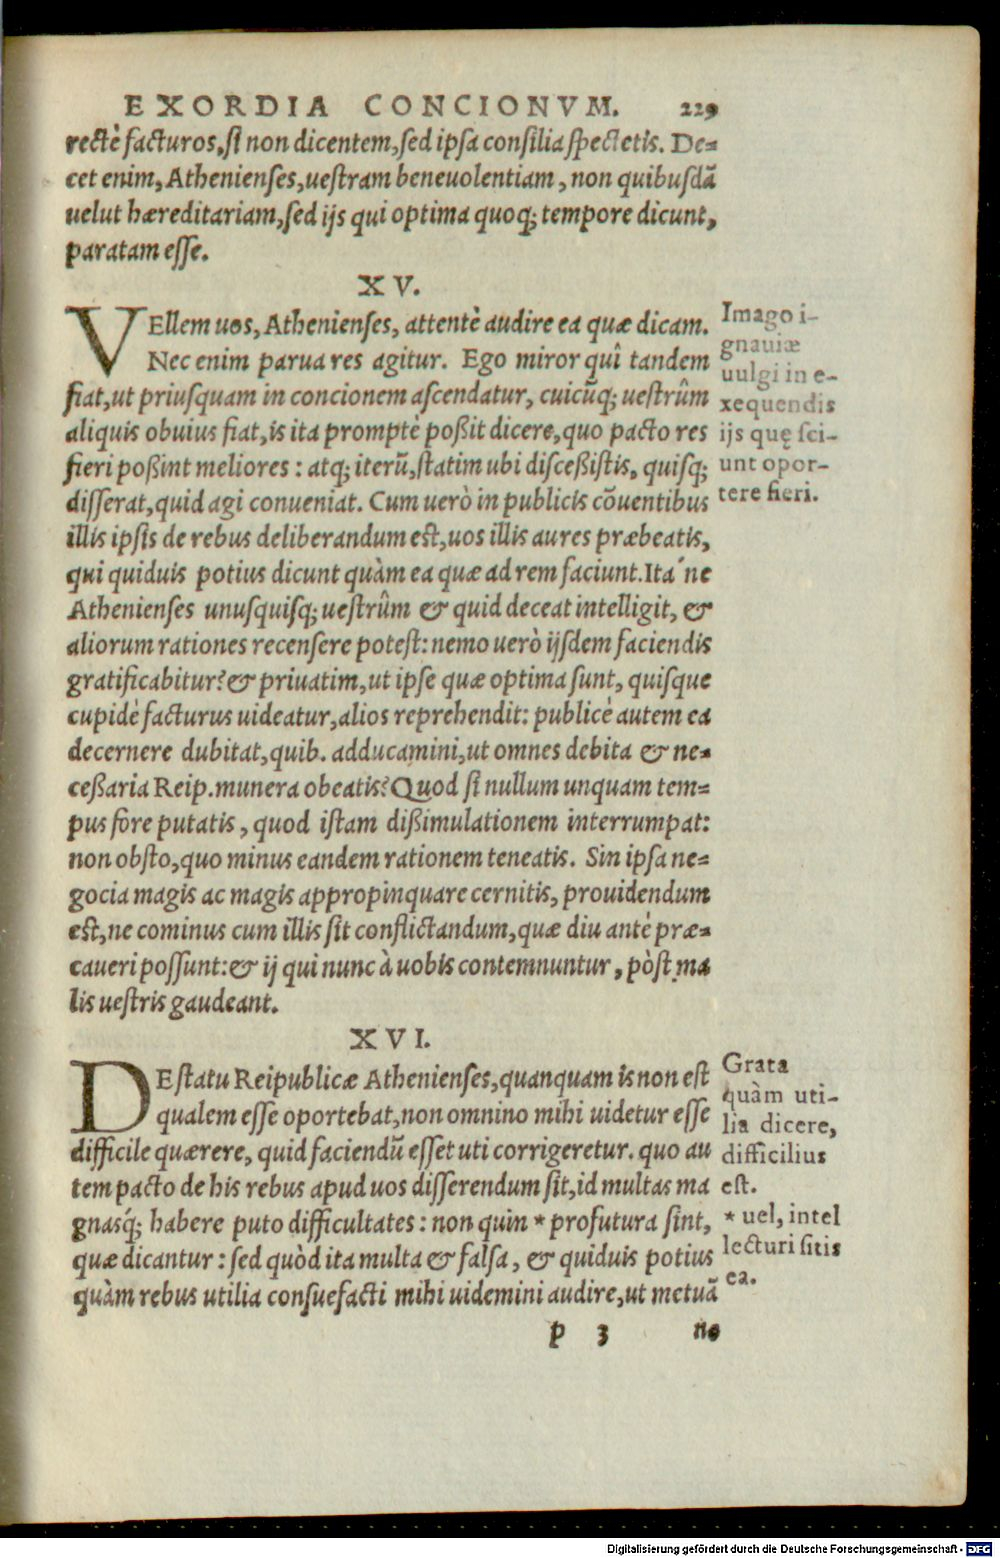 EXORDIA CONCIONVM. 229
rectè facturos, si non dicentem, sed ipsa consilia spectetis. De-
cet enim, Athenienses, uestram beneuolentiam, non quibusdā
uelut hæreditariam, sed ijs qui optima quoq; tempore dicunt,
paratam esse.
XV.
VEllem uos, Athenienses, attentè audire ea quæ dicam.
Nec enim parua res agitur. Ego miror quî tandem
fiat, ut priusquam in concionem ascendatur, cuicūq; uestrûm
aliquis obuius fiat, is ita promptè poßit dicere, quo pacto res
fieri poßint meliores: atq; iterū, statim ubi disceßistis, quisq;
disserat, quid agi conueniat. Cum uerò in publicis cōuentibus
illis ipsis de rebus deliberandum est, uos illis aures præbeatis,
qui quiduis potius dicunt quàm ea quæ ad rem faciunt. Ita´ne
Athenienses unusquisq; uestrûm & quid deceat intelligit, &
aliorum rationes recensere potest: nemo uerò ijsdem faciendis
gratificabitur? & priuatim, ut ipse quæ optima sunt, quisque
cupidè facturus uideatur, alios reprehendit: publicè autem ea
decernere dubitat, quib. adducamini, ut omnes debita & ne-
ceßaria Reip. munera obeatis? Quod si nullum unquam tem-
pus fore putatis, quod istam dißimulationem interrumpat:
non obsto, quo minus eandem rationem teneatis. Sin ipsa ne-
gocia magis ac magis appropinquare cernitis, prouidendum
est, ne cominus cum illis sit conflictandum, quæ diu antè præ-
caueri possunt: & ij qui nunc à uobis contemnuntur, pòst ma
lis uestris gaudeant.
Imago i-
gnauiæ
uulgi in e-
xequendis
ijs quę sci-
unt opor-
tere fieri.
XVI.
DE statu Reipublicæ Athenienses, quanquam is non est
qualem esse oportebat, non omnino mihi uidetur esse
difficile quærere, quid faciendū esset uti corrigeretur. quo au
tem pacto de his rebus apud uos disserendum sit, id multas ma
gnasq́; habere puto difficultates: non quin * profutura sint,
quæ dicantur: sed quòd ita multa & falsa, & quiduis potius
quàm rebus utilia consuefacti mihi uidemini audire, ut metuā
Grata
quàm uti-
lia dicere,
difficilius
est.
* uel, intel
lecturi sitis
ea.
p 3 ne
Digitalisierung gefördert durch die Deutsche Forschungsgemeinschaft - DFG